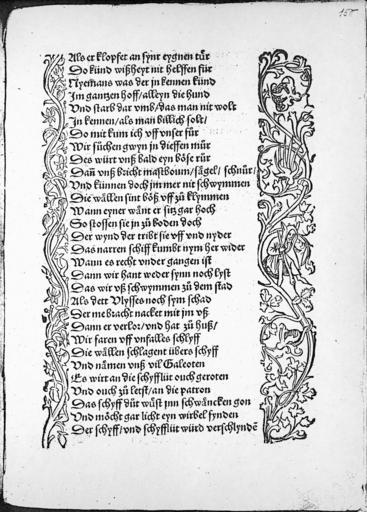 155
Als er klopfet an synr eygnen tür
Do kund wißheyt nit helffen für
Nyemans was der jn kennen künd
Im gantzen hoff / alleyn die hund
Vnd starb dar vmb / das man nit wolt
Jn kennen / als man billich solt /
Do mit kum ich vff vnser für
Wir süchen gwyn jn dieffen mür
Des würt vnß bald eyn böse rür
Dañ vnß bricht mastboum / sägel / schnür /
Vnd künnen doch jm mer nit schwymmen
Die wällen sint böß vff zů klymmen
Wann eyner wänt er sitz gar hoch
So stossen sie jn zů boden doch
Der wynd der tribt sie vff vnd nyder
Das narren schiff kumbt nym her wider
Wann es recht vnder gangen ist
Dann wir hant weder synn noch lyst
Das wir vß schwymmen zů dem stad
Als dett Vlysses noch sym schad
Der me bracht nacket mit jm vß
Dann er verlor / vnd hat zů huß /
Wir faren vff vnfalles schlyff
Die wällen schlagent übers schyff
Vnd nämen vnß vil Galeoten
Es wirt an die schyfflüt ouch geroten
Vnd ouch zů letst / an die patron
Das schyff düt wüst jnn schwäncken gon
Vnd möcht gar licht eyn wirbel fynden
Der schyff / vnd schyfflüt würd verschlyndẽ